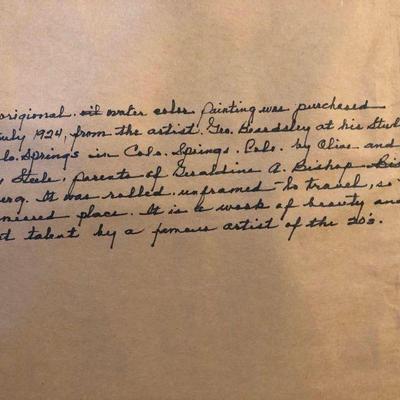 origional. oil water color painting was purchased
July 1924, from the artist. Geo. Beardsley at his Stud
lo. Springs in Colo. Springs. Colo. by Olive and
Steele, parents of Geraldine A. Bishop
berg. It was rolled unframed - to travel, so
creased place. It is a work of beauty and
talent by a famous artist of the 20's.